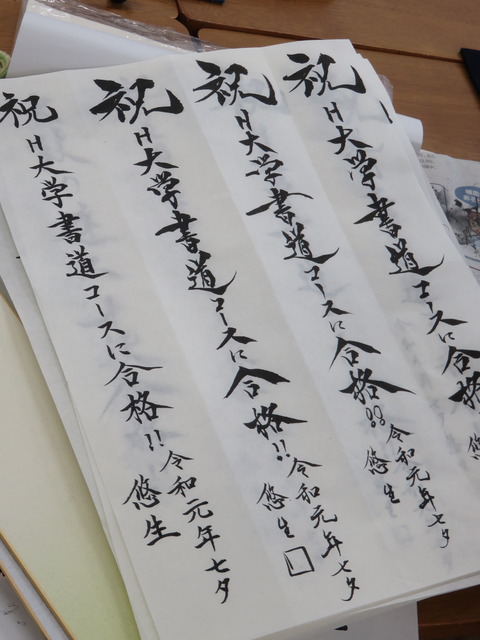 祝H大学書道コースに合格
悠
祝H大学書道コースに合格!!
令和元年七夕
悠生
祝H大学書道コースに合格!!
令和元年七夕
悠生
祝H大学書道コースに合格!!
令和元年七夕
悠生